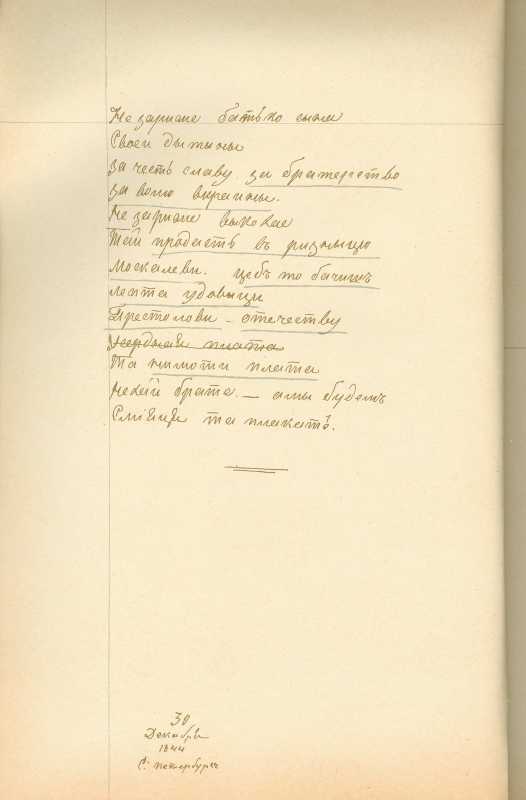 Не зариже батько сына
Своеи дытыны
За честь славу за братерство
За волю вкраины.
Не зариже выкохае
Тай продасть въ ризныцю
Москалеви. цебъ то бачишъ
лепта удовыци
Престолови – отечеству
Та нимоти плата
Нехай брате – а мы будемъ
Сміяця та плакать.
30
Декабря
1844
С: Петербургъ